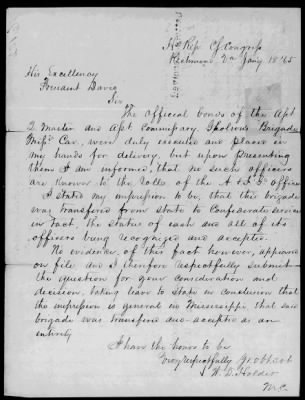 Ho Rep Cf Congress
Richmond Va Jany 18 '65
His Excellency
President Davis
Sir
The official bonds of the Asst
Q. Master and Asst Commissary Brigade
Missi Cav. were duly issued and place in
my hands for delivery, but upon presenting
them I am informed, that no such officers
are known to the Rolls of the A & I G office
I stated my impression to be, that this brigade
was transfered from State to Confederate service
in tact, the status of each and all of its
officers being recognised and accepted.
No evidence of this fact however, appears
on file and I therefore respectfully submit
the question for your consideration and
decision, taking leave to state in conclusion that
the impression is general in Mississippi, that said
brigade was transfered and accepted as an
entirety
I have the honor to be
Very respectfully Yr obt svt
W. D. Holder
M.C.